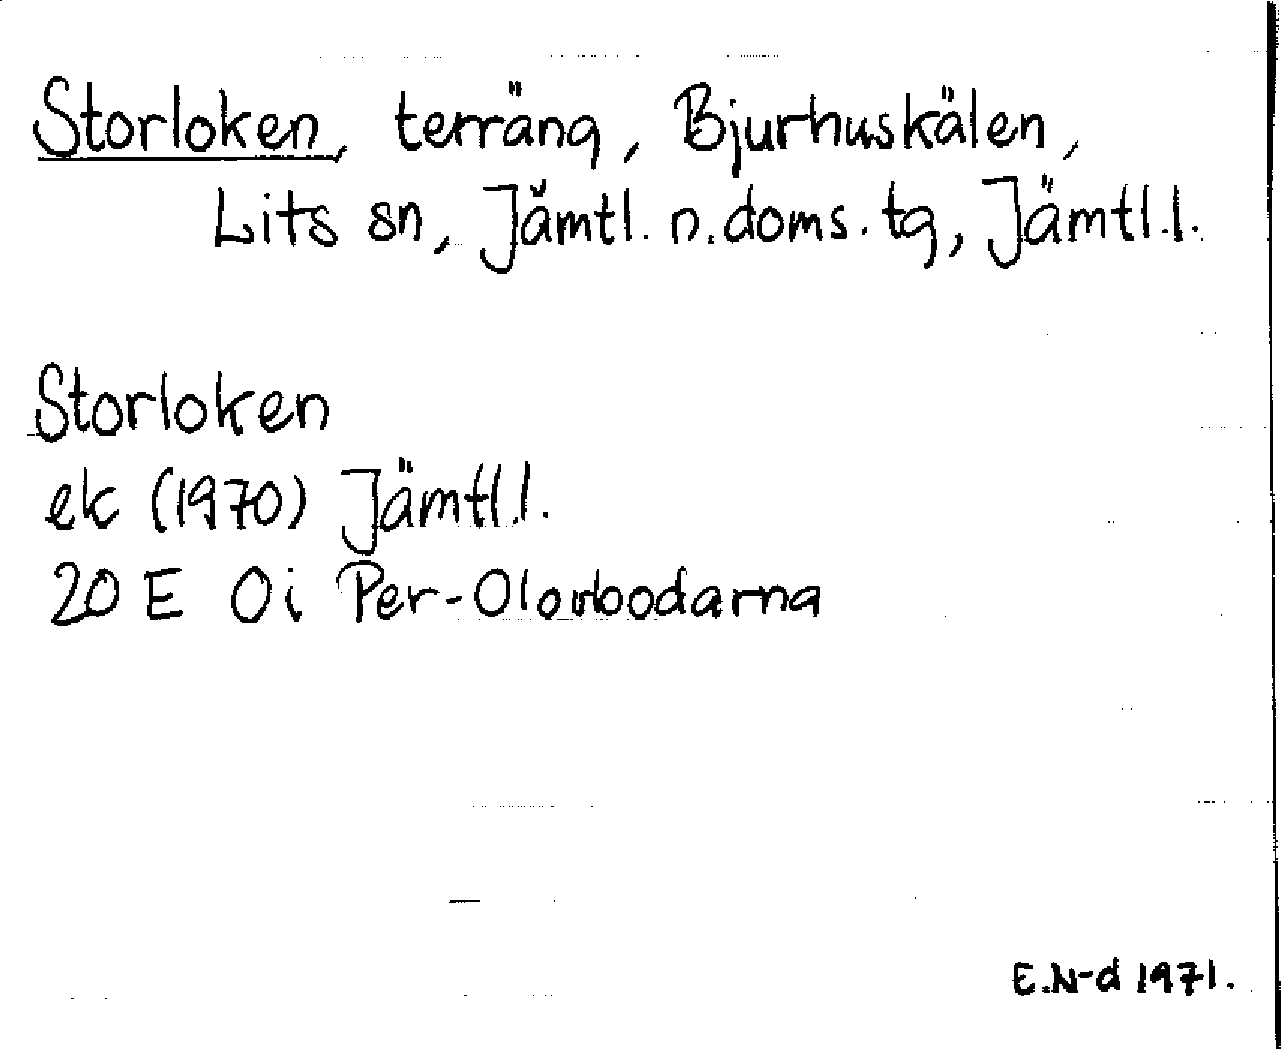 Storloken, terräng, Bjurhuskälen,
Lits sn, Jämtl. n. doms. tg, Jämtl.l.
Storloken
ek (1970) Jämtl.l.
20 E 0i Per-Olovbodarna
E.N-d 1971.